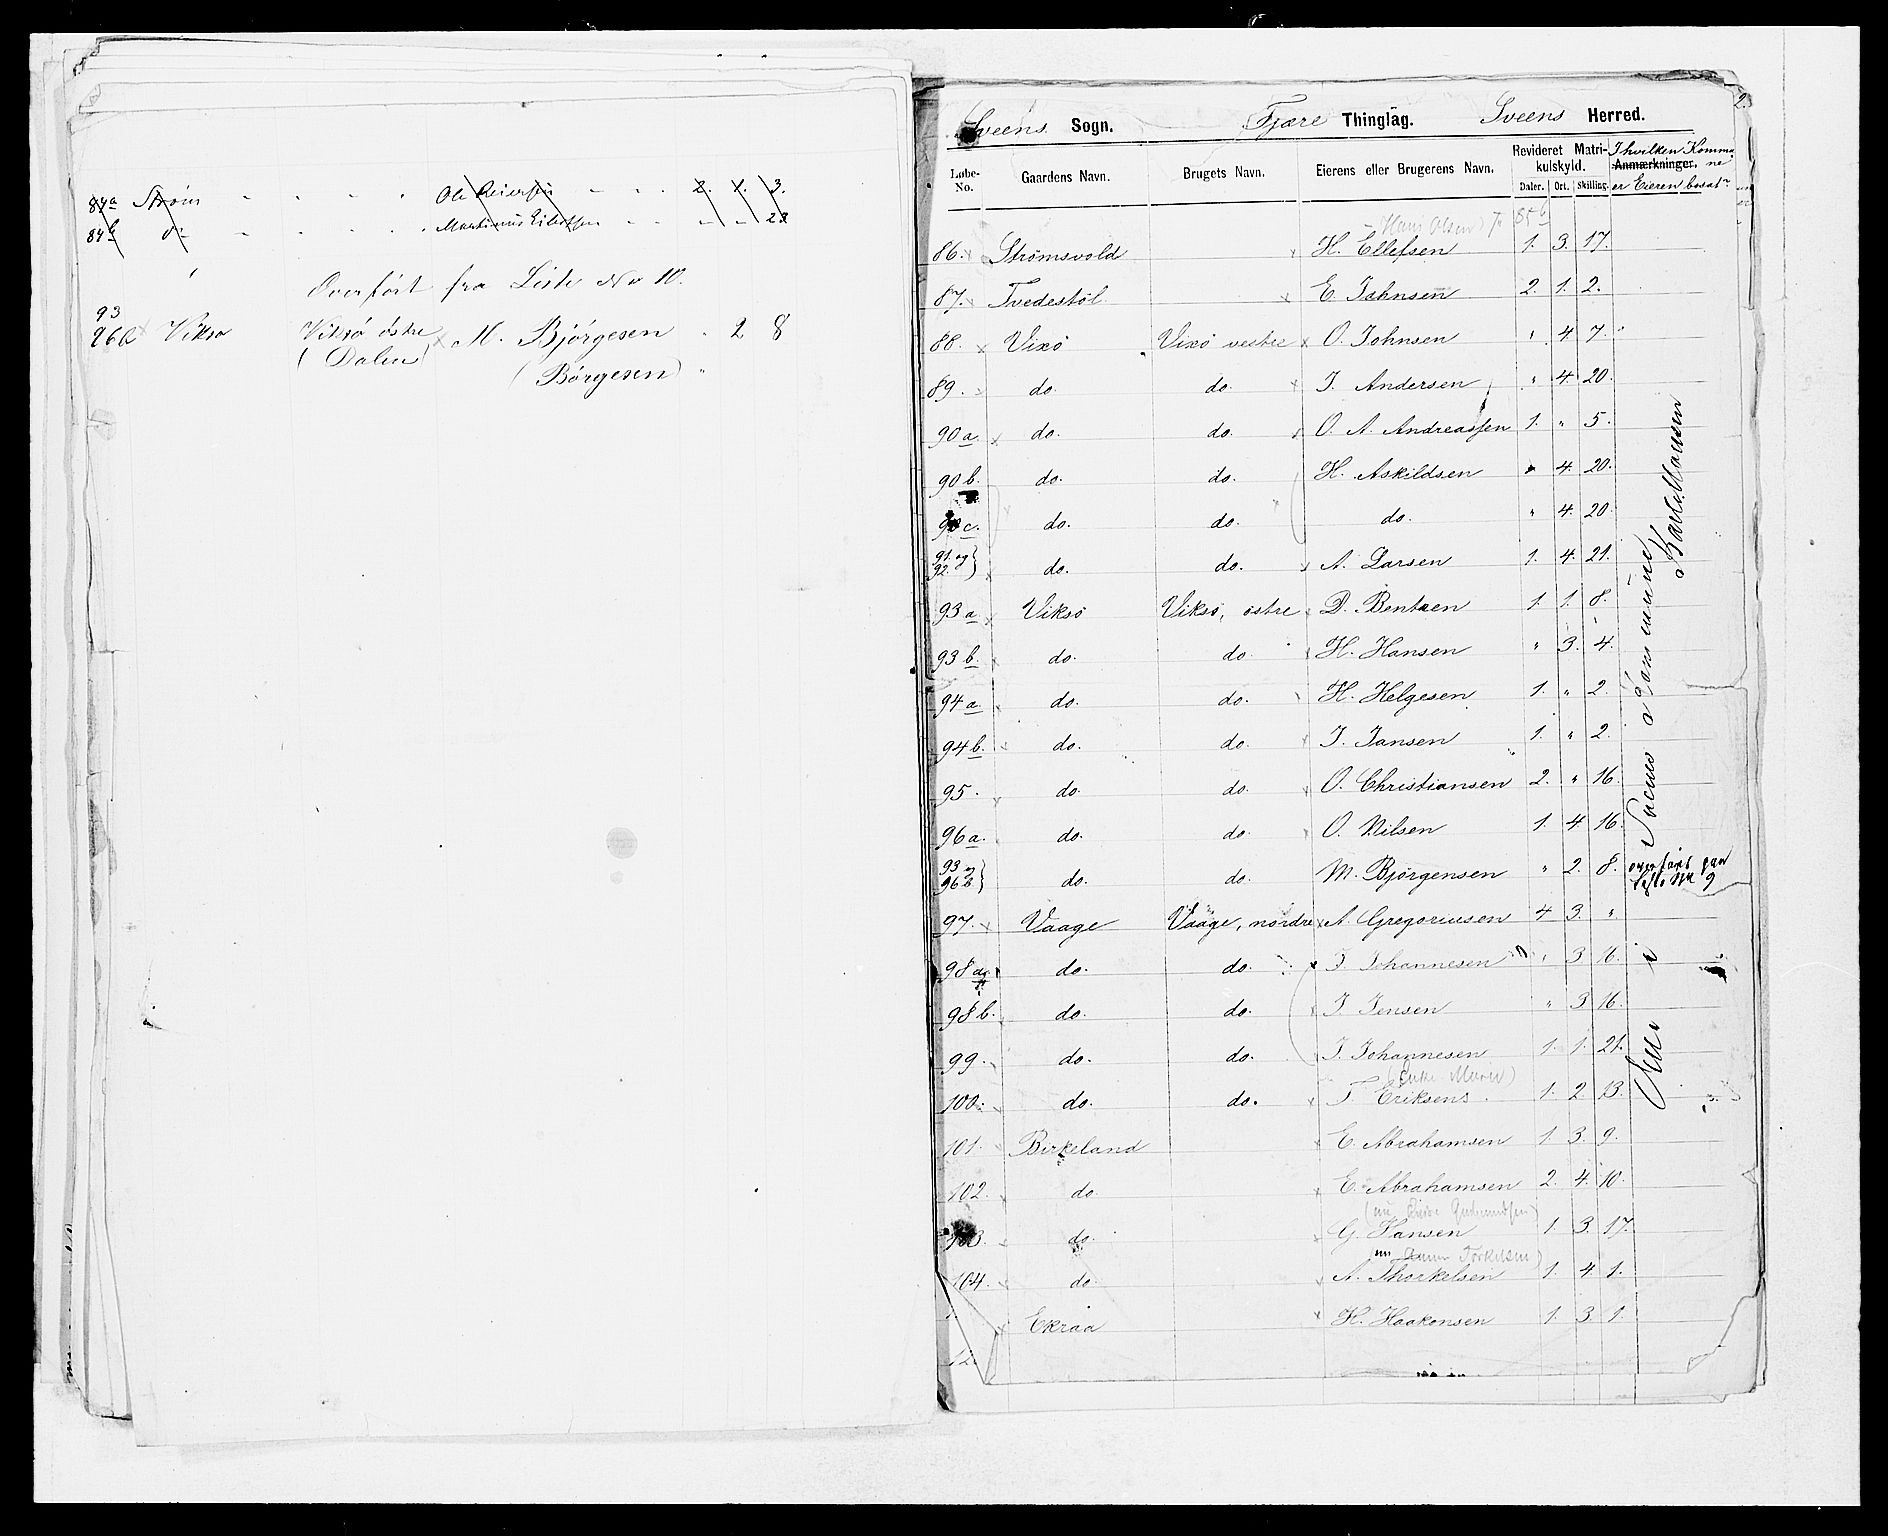 84a Strøm " " " " Ole Reiersen " " " 2. 1. 3.
84b do " " " " Martinus Eilertsen " " " " 23
Overført fra Liste No 10.
93
96b Viksø Viksø østre M. Bjørgesen " 2 8
(Dalen) (Børgesen) "
Sveens Sogn. Fjære Thinglag. Sveens Herred.
Løbe-No. Gaardens Navn. Brugets Navn. Eierens eller Brugerens Navn. Revideret Matrikulskyld. Daler. Ort. Skilling. Anmærkninger. I hvilken Kommune er Eieren bosat
Hans Olsen 85b
86. Strømsvold H. Ellefsen 1. 3. 17.
87. Tvedestøl E. Johnsen 2. 1. 2.
88. Vixø Vixø vestre O. Johnsen " 4. 7.
89. do. do. I. Andersen " 4. 20.
90a. do. do. O. A. Andreassen 1. " 5.
90b. do. do. H. Askildsen " 4. 20.
90c. do. do. do. " 4. 20.
91. og 92. do. do. A. Larsen 1. 4. 21.
93a Viksø Viksø, østre D. Bentzen 1. 1. 8.
93b. do. do. H. Hansen " 3. 4.
94a. do. do. H. Helgesen 1. " 2.
94b. do. do. I. Jansen 1. " 2.
95. do. do. O. Christiansen 2. " 16.
96a. do. do. O. Nilsen 1. 4. 16.
93 og 96b do. do. M. Bjørgensen " 2. 8. overført paa Liste No 9
97. Vaage Vaage, nordre A. Gregoriusen 4 3. "
98a. do. do. I. Johannesen " 3 16.
98b. do. do. I. Jensen " 3 16.
99. do. do. I. Johannesen 1. 1. 21.
100. do. do. T. Eriksens 1. 2. 13.
101. Birkeland E. Abrahamsen 1. 3. 9.
102. do E. Abrahamsen 2. 4. 10.
103. do. G. Hansen 1. 3. 17.
(nu Torkelsen)
104. do. A. Thorkelsen 1. 4. 1.
1. Ekraa H. Haakonsen 1. 3. 1.
12.